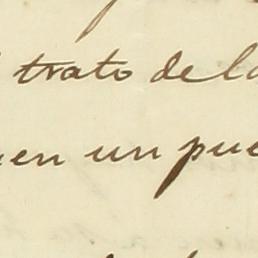 trato de la
en un pue